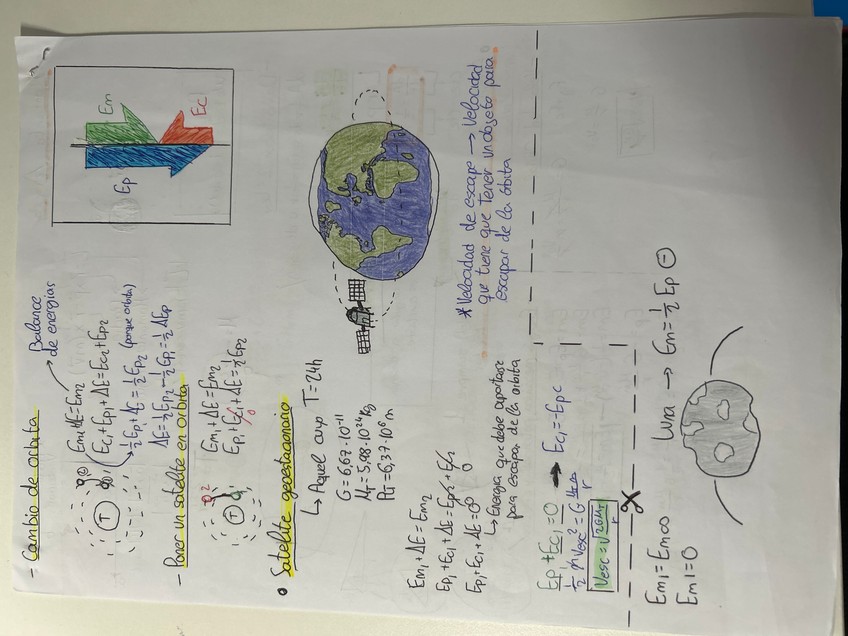 - Cambio de orbita
Balance
de energias
Em1+ΔE=Em2
Ec1+Ep1+ΔE=Ec2+Ep2
½Ep1+ΔE=½Ep2 (porque orbita)
ΔE=½Ep2-½Ep1=½ΔEp
T
Ep
Em
Ec
- Poner un satelite en orbita
Em1+ΔE=Em2
Ep1+Ec1+ΔE=½Ep2
0
T
• Satelite geoestacionario
↳ Aquel cuyo T=24h
G=6,67·10⁻¹¹
MT=5,98·10²⁴kg
RT=6,37·10⁶m
Em1+ΔE=Em2
Ep1+Ec1+ΔE=Ep2+Ec2
Ep1+Ec1+ΔE=0
0
0
↳ Energia que debe aportarse
para escapar de la orbita
* Velocidad de escape → Velocidad
que tiene que tener un objeto para
escapar de la órbita
Ep+Ec1=0 → Ec1=-Epc
Vesc=√2GMT/r
Em1=Em∞
Em1=0
Luna → Em=½Ep ⊖